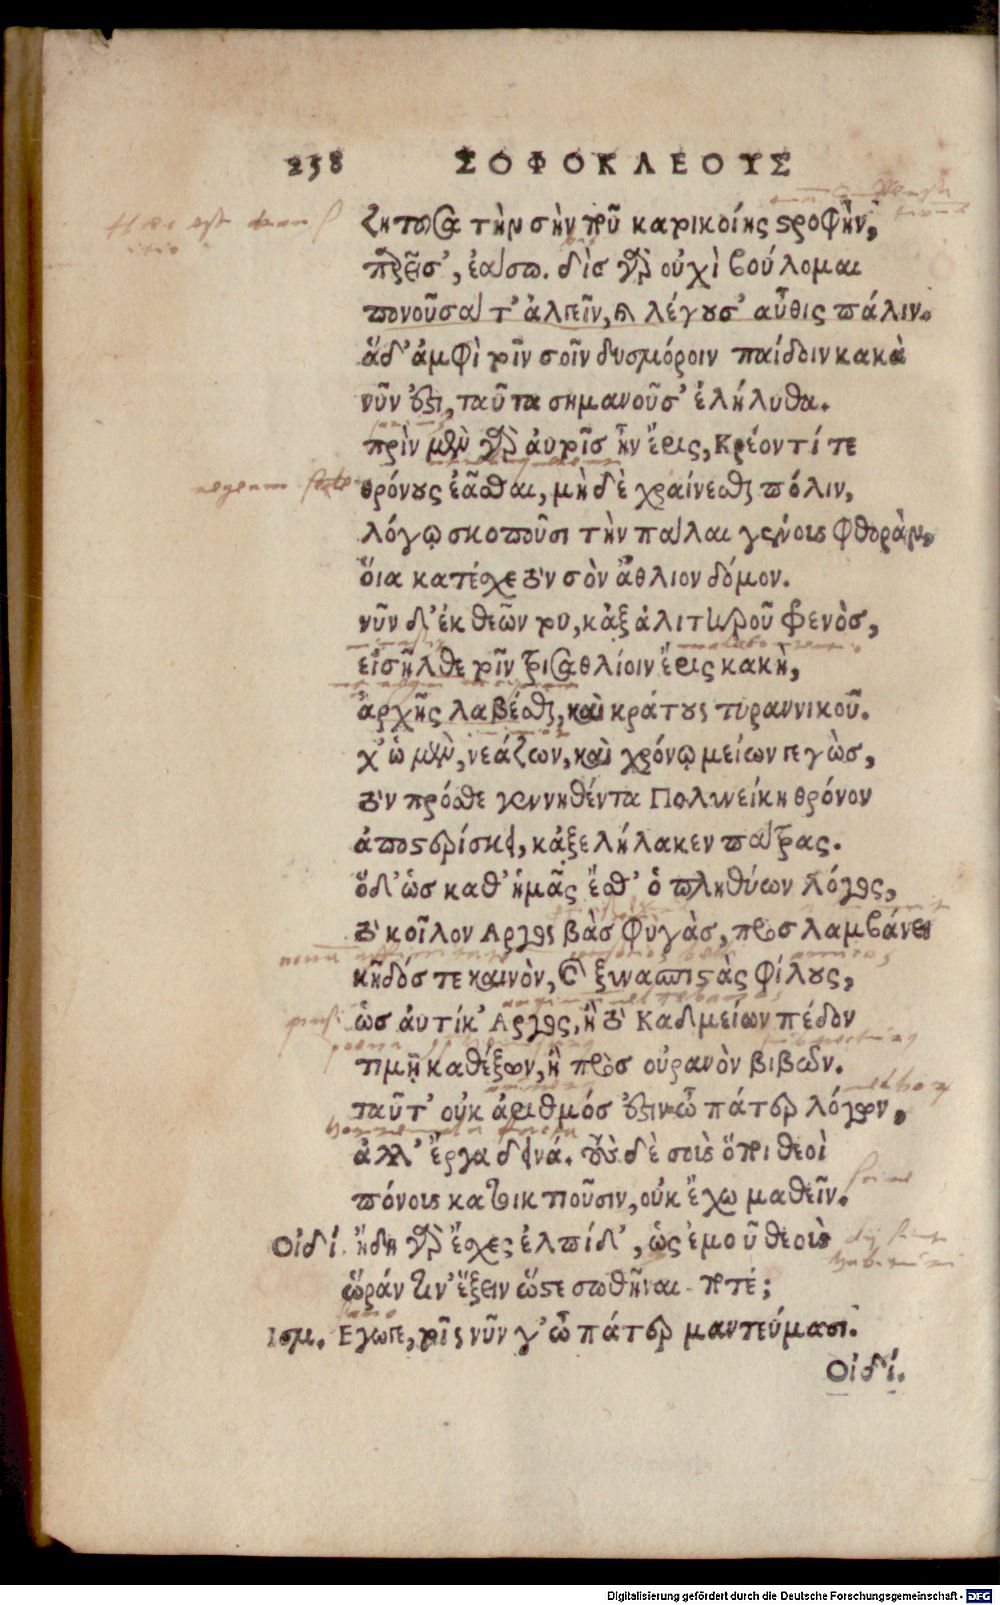 238 ΣΟΦΟΚΛΕΟΥΣ
ζητοῦσα τὴν σὴν ποῦ κατοικοίης τροφὴν,
παρεῖσ’, ἐάσω. δὶσ γὰρ οὐχὶ βούλομαι
πονοῦσά τ’ ἀλγεῖν, καὶ λέγουσ’ αὖθις πάλιν.
ἅδ’ ἀμφὶ τοῖν σοῖν δυσμόροιν παίδοιν κακὰ
νῦν ἐστι, ταῦτα σημανοῦσ’ ἐλήλυθα.
πρὶν μὲν γὰρ αὐτοῖσ ἦν ἔρις, Κρέοντί τε
θρόνους ἐᾶσθαι, μηδὲ χραίνεσθαι πόλιν,
λόγῳ σκοποῦσι τὴν πάλαι γένους φθορὰν,
ὅια κατέσχε τὸν σὸν ἄθλιον δόμον.
νῦν δ’ ἐκ θεῶν του, κἀξ ἀλιτηροῦ φρενὸσ,
εἰσῆλθε τοῖν τρισαθλίοιν ἔρις κακὴ,
ἀρχῆς λαβέσθαι, καὶ κράτους τυραννικοῦ.
χ’ ὡ μὲν, νεάζων, καὶ χρόνῳ μείων γεγὼσ,
τὸν πρόσθε γεννηθέντα Πολυνείκη θρόνον
ἀποστερίσκει, κἀξελήλακεν πάτρας.
ὅδ’ ὡσ καθ’ ἡμᾶς ἔσθ’ ὁ πληθύων λόγος,
τὸ κοῖλον Αργος βὰσ φυγὰσ, προσλαμβάνει
κῆδοσ τε καινὸν, καὶ ξυνασπιστὰς φίλους,
ὡσ αὐτίκ’ Αργος, ἢ τὸ Καδμείων πέδον
τιμῇ καθέξον, ἢ πρὸσ οὐρανὸν βιβῶν.
ταῦτ’ οὐκ ἀριθμόσ ἐστιν ὦ πάτερ λόγων,
ἀλλ’ ἔργα δεινά. τοὺς δὲ σοὺς ὅποι θεοὶ
πόνους κατοικτιοῦσιν, οὐκ ἔχω μαθεῖν.
Οἰδί. ἤδη γὰρ ἔσχες ἐλπίδ’, ὡς ἐμοῦ θεοὺς
ὥραν τιν’ ἕξειν ὥστε σωθῆναι ποτέ;
Ισμ. Εγωγε, τοῖς νῦν γ’ ὦ πάτερ μαντεύμασι.
Οἰδί.
Digitalisierung gefördert durch die Deutsche Forschungsgemeinschaft - DFG